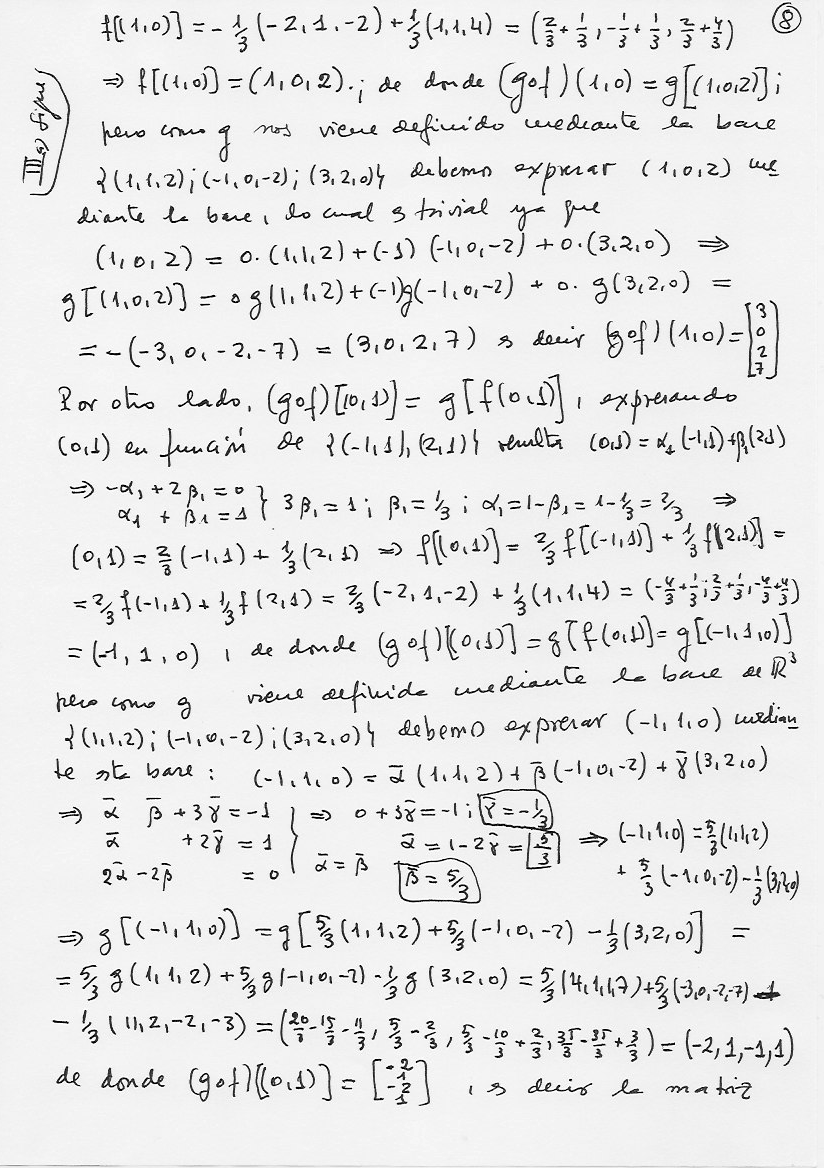 f[(1,0)] = -1/3 (-2,1,-2) + 1/3 (1,1,4) = (2/3+1/3, -1/3+1/3, 2/3+4/3) ⑧
⇒ f[(1,0)] = (1,0,2).; de donde (gof)(1,0) = g[(1,0,2)];
III a) Sigue
pero como g nos viene definido mediante la base
{(1,1,2);(-1,0,-2);(3,2,0)} debemos expresar (1,0,2) me
diante la base, lo cual es trivial ya que
(1,0,2) = 0.(1,1,2)+(-1)(-1,0,-2)+0.(3,2,0) ⇒
g[(1,0,2)] = 0 g(1,1,2)+(-1)g(-1,0,-2) + 0. g(3,2,0) =
= -(-3,0,-2,-7) = (3,0,2,7) es decir (gof)(1,0) = [3 0 2 7]
Por otro lado, (gof)[(0,1)] = g[f(0,1)], expresando
(0,1) en función de {(-1,1),(2,1)} resulta (0,1) = α₁(-1,1)+β₁(2,1)
⇒ -α₁+2β₁=0
α₁ + β₁=1 } 3β₁=1; β₁=1/3; α₁=1-β₁=1-1/3=2/3 ⇒
(0,1) = 2/3(-1,1) + 1/3(2,1) ⇒ f[(0,1)] = 2/3 f[(-1,1)] + 1/3 f[(2,1)] =
= 2/3 f(-1,1) + 1/3 f(2,1) = 2/3 (-2,1,-2) + 1/3 (1,1,4) = (-4/3+1/3; 2/3+1/3, -4/3+4/3)
= (-1,1,0), de donde (gof)[(0,1)] = g[f(0,1)] = g[(-1,1,0)]
pero como g viene definida mediante la base de ℝ³
{(1,1,2);(-1,0,-2);(3,2,0)} debemos expresar (-1,1,0) median
te esta base: (-1,1,0) = ᾱ(1,1,2)+β̄(-1,0,-2)+γ̄(3,2,0)
⇒ ᾱ β̄ +3γ̄ = -1 } ⇒ 0+3γ̄=-1; γ̄=-1/3
ᾱ +2γ̄ = 1 ᾱ=1-2γ̄= 5/3 ⇒ (-1,1,0) = 5/3(1,1,2)
2ᾱ-2β̄ = 0 ᾱ=β̄ β̄=5/3 + 5/3 (-1,0,-2) - 1/3(3,2,0)
⇒ g[(-1,1,0)] = g[5/3(1,1,2)+5/3(-1,0,-2) - 1/3(3,2,0)] =
= 5/3 g(1,1,2) + 5/3 g(-1,0,-2) - 1/3 g(3,2,0) = 5/3(4,1,1,7)+5/3(-3,0,-2,-7)
- 1/3 (11,2,-2,-3) = (20/3-15/3-11/3, 5/3-2/3, 5/3-10/3+2/3, 35/3-35/3+3/3) = (-2,1,-1,1)
de donde (gof)[(0,1)] = , es decir la matriz